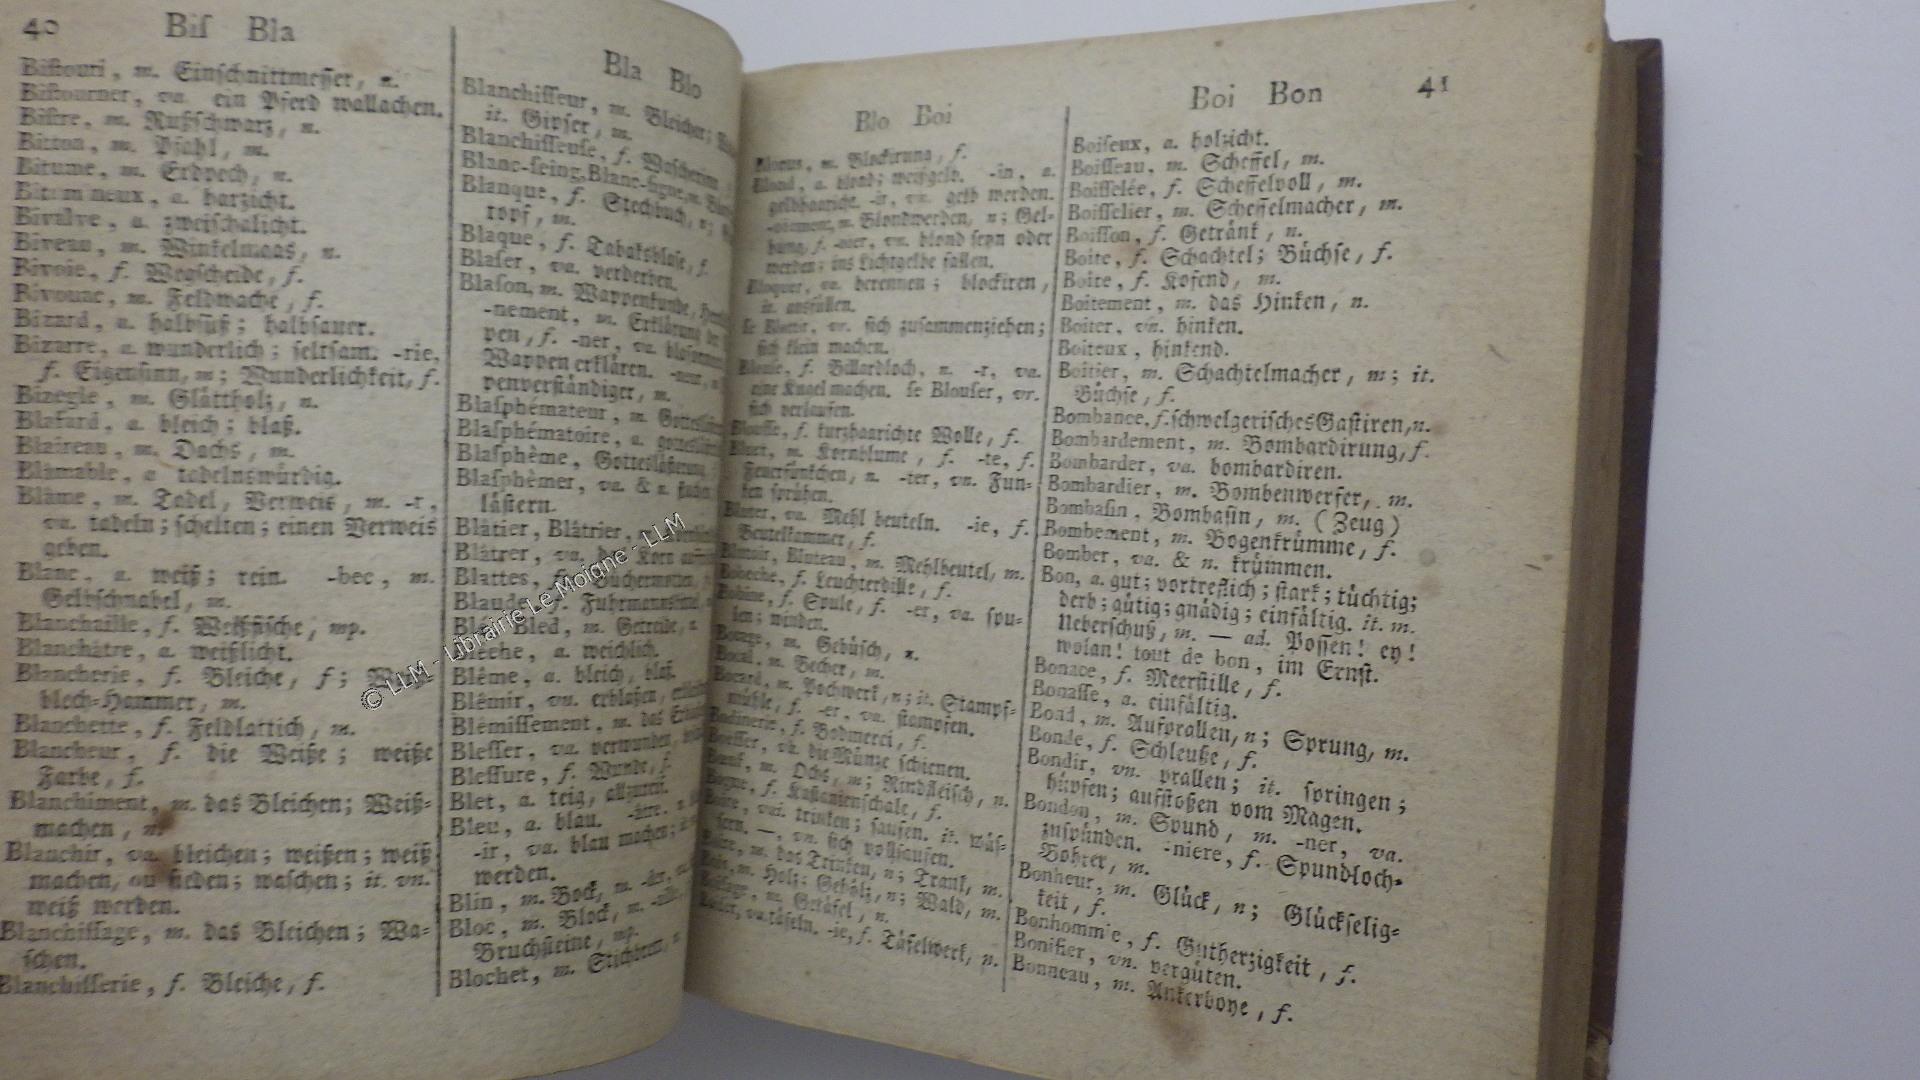 40 Biſ Bla
Biſtouri, m. Einſchnittmeſſer, n.
Biſtourner, va. ein Pferd wallachen.
Biſtre, m. Rußſchwarz, n.
Bitton, m. Pfahl, m.
Bitume, m. Erdpech, n.
Bitumineux, a. harzicht.
Bivalve, a. zweiſchalicht.
Biveau, m. Winkelmaas, n.
Bivoie, f. Wegſcheide, f.
Bivouac, m. Feldwache, f.
Bizard, a. halbſüß; halbſauer.
Bizarre, a. wunderlich; ſeltſam. -rie,
f. Eigenſinn, m; Wunderlichkeit, f.
Bizegle, m. Glättholz, n.
Blafard, a. bleich; blaß.
Blaireau, m. Dachs, m.
Blâmable, a tadelnswürdig.
Blâme, m. Tadel, Verweis, m. -r,
va. tadeln; ſchelten; einen Verweis
geben.
Blanc, a. weiß; rein. -bec, m.
Gelbſchnabel, m.
Blanchaille, f. Weißfiſche, mp.
Blanchâtre, a. weißlicht.
Blancherie, f. Bleiche, f;
blech-Hammer, m.
Blanchette, f. Feldlattich, m.
Blancheur, f. die Weiße; weiße
Farbe, f.
Blanchiment, m. das Bleichen; Weiß-
machen, n.
Blanchir, va. bleichen; weißen; weiß
machen, ou ſieden; waſchen; it. vn.
weiß werden.
Blanchiſſage, m. das Bleichen; Wa-
ſchen.
Blanchiſſerie, f. Bleiche, f.
Bla Blo
Blanchiſſeur, m. Bleicher;
it. Gipſer, m.
Blanchiſſeuſe, f. Waſcherinn
Blanc-ſeing, Blanc-ſigné, m.
Blanque, f. Stechbuch, n;
topf, m.
Blaque, f. Tabaksblaſe, f.
Blaſer, va. verderben.
Blaſon, m. Wappenkunde,
-nement, m. Erklärung der
pen, f. -ner, va. blaſoniren
Wappen erklären. -neur,
penverſtändiger, m.
Blaſphémateur, m.
Blaſphématoire, a.
Blaſphème, Gottesläſterung,
Blaſphêmer, va. & n. fluchen
läſtern.
Blâtier, Blâtrier,
Blâtrer, va. das Korn
Blattes, f. Büchermotten,
Blaude, f. Fuhrmannskittel,
Blé, Bled, m. Getreide, n.
Blèche, a. weichlich.
Blême, a. bleich, blaß.
Blêmir, vn. erblaßen,
Blêmiſſement, m. das
Bleſſer, va. verwunden,
Bleſſure, f. Wunde, f.
Blet, a. teig,
Bleu, a. blau. -âtre.
-ir, va. blau machen;
werden.
Blin, m. Bock, m.
Bloc, m. Block, m.
Bruchſteine, mp.
Blochet, m.
© LLM - Librairie Le Moigne - LLM
Blo Boi
Blocus, m. Blockirung, f.
Blond, a. blond; weißgelb. -in, a.
gelbhaaricht. -ir, vn. gelb werden.
m. Blondwerden, n; Gel-
bung, f. -nier, vn. blond ſeyn oder
werden; ins Lichtgelbe fallen.
Bloquer, va. berennen; blockiren,
it. ausfüllen.
ſe Blottir, vr. ſich zuſammenziehen;
ſich klein machen.
Blouſe, f. Billardloch, n. -r, va.
eine Kugel machen. ſe Blouſer, vr.
ſich verlaufen.
Blouſſe, f. kurzhaarichte Wolle, f.
Bluet, m. Kornblume, f. -te, f.
Feuerfünkchen, n. -ter, vn. Fun-
ken ſprühen.
Bluter, va. Mehl beuteln. -ie, f.
Beutelkammer, f.
Blutoir, Bluteau, m. Mehlbeutel, m.
Bobeche, f. Leuchterdille, f.
Bobine, f. Spule, f. -er, va. ſpu-
len; winden.
Bocage, m. Gebüſch, n.
Bocal, m. Becher, m.
Bocard, m. Pochwerk, n; it. Stampf-
mühle, f. -er, va. ſtampfen.
Bodinerie, f. Bodmerei, f.
Boeſſer, va. die Münze ſchienen.
Boeuf, m. Ochs, m; Rindfleiſch, n.
Bogue, f. Kaſtanienſchale, f.
Boire, va. trinken; ſaufen. it. wäſ-
ſern. —, vn. ſich vollſaufen.
Boire, m. das Trinken, n; Trank, m.
Bois, m. Holz; Gehölz, n; Wald, m.
Boiſage, m. Getäfel, n.
Boiſer, va. täfeln. -ie, f. Täfelwerk, n.
Boi Bon 41
Boiſeux, a. holzicht.
Boiſſeau, m. Scheffel, m.
Boiſſelée, f. Scheffelvoll, m.
Boiſſelier, m. Scheffelmacher, m.
Boiſſon, f. Getränk, n.
Boite, f. Schachtel; Büchſe, f.
Boite, f. Kofend, m.
Boitement, m. das Hinken, n.
Boiter, vn. hinken.
Boiteux, hinkend.
Boitier, m. Schachtelmacher, m; it.
Büchſe, f.
Bombance, f. ſchwelgeriſches Gaſtiren, n.
Bombardement, m. Bombardirung, f.
Bombarder, va. bombardiren.
Bombardier, m. Bombenwerfer, m.
Bombaſin, Bombaſin, m. (Zeug)
Bombement, m. Bogenkrümme, f.
Bomber, va. & n. krümmen.
Bon, a. gut; vortreflich; ſtark; tüchtig;
derb; gütig; gnädig; einfältig. it. m.
Ueberſchuß, m. — ad. Poſſen! ey!
wolan! tout de bon, im Ernſt.
Bonace, f. Meerſtille, f.
Bonaſſe, a. einfältig.
Bond, m. Aufprallen, n; Sprung, m.
Bonde, f. Schleuße, f.
Bondir, vn. prallen; it. ſpringen;
hüpfen; aufſtoßen vom Magen.
Bondon, m. Spund, m. -ner, va.
zuſpünden. -niere, f. Spundloch-
Bohrer, m.
Bonheur, m. Glück, n; Glückſelig-
keit, f.
Bonhommie, f. Gutherzigkeit, f.
Bonifier, vn. vergüten.
Bonneau, m. Ankerboye, f.